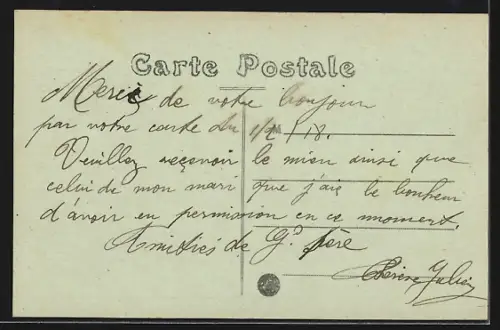 Carte Postale
Merci de votre bonjour
par votre carte du 1/2/18.
Veuillez reçevoir le mien ainsi que
celui de mon mari que j'ais le bonheur
d'avoir en permission en ce moment.
Amitiés de Gd père
Julien